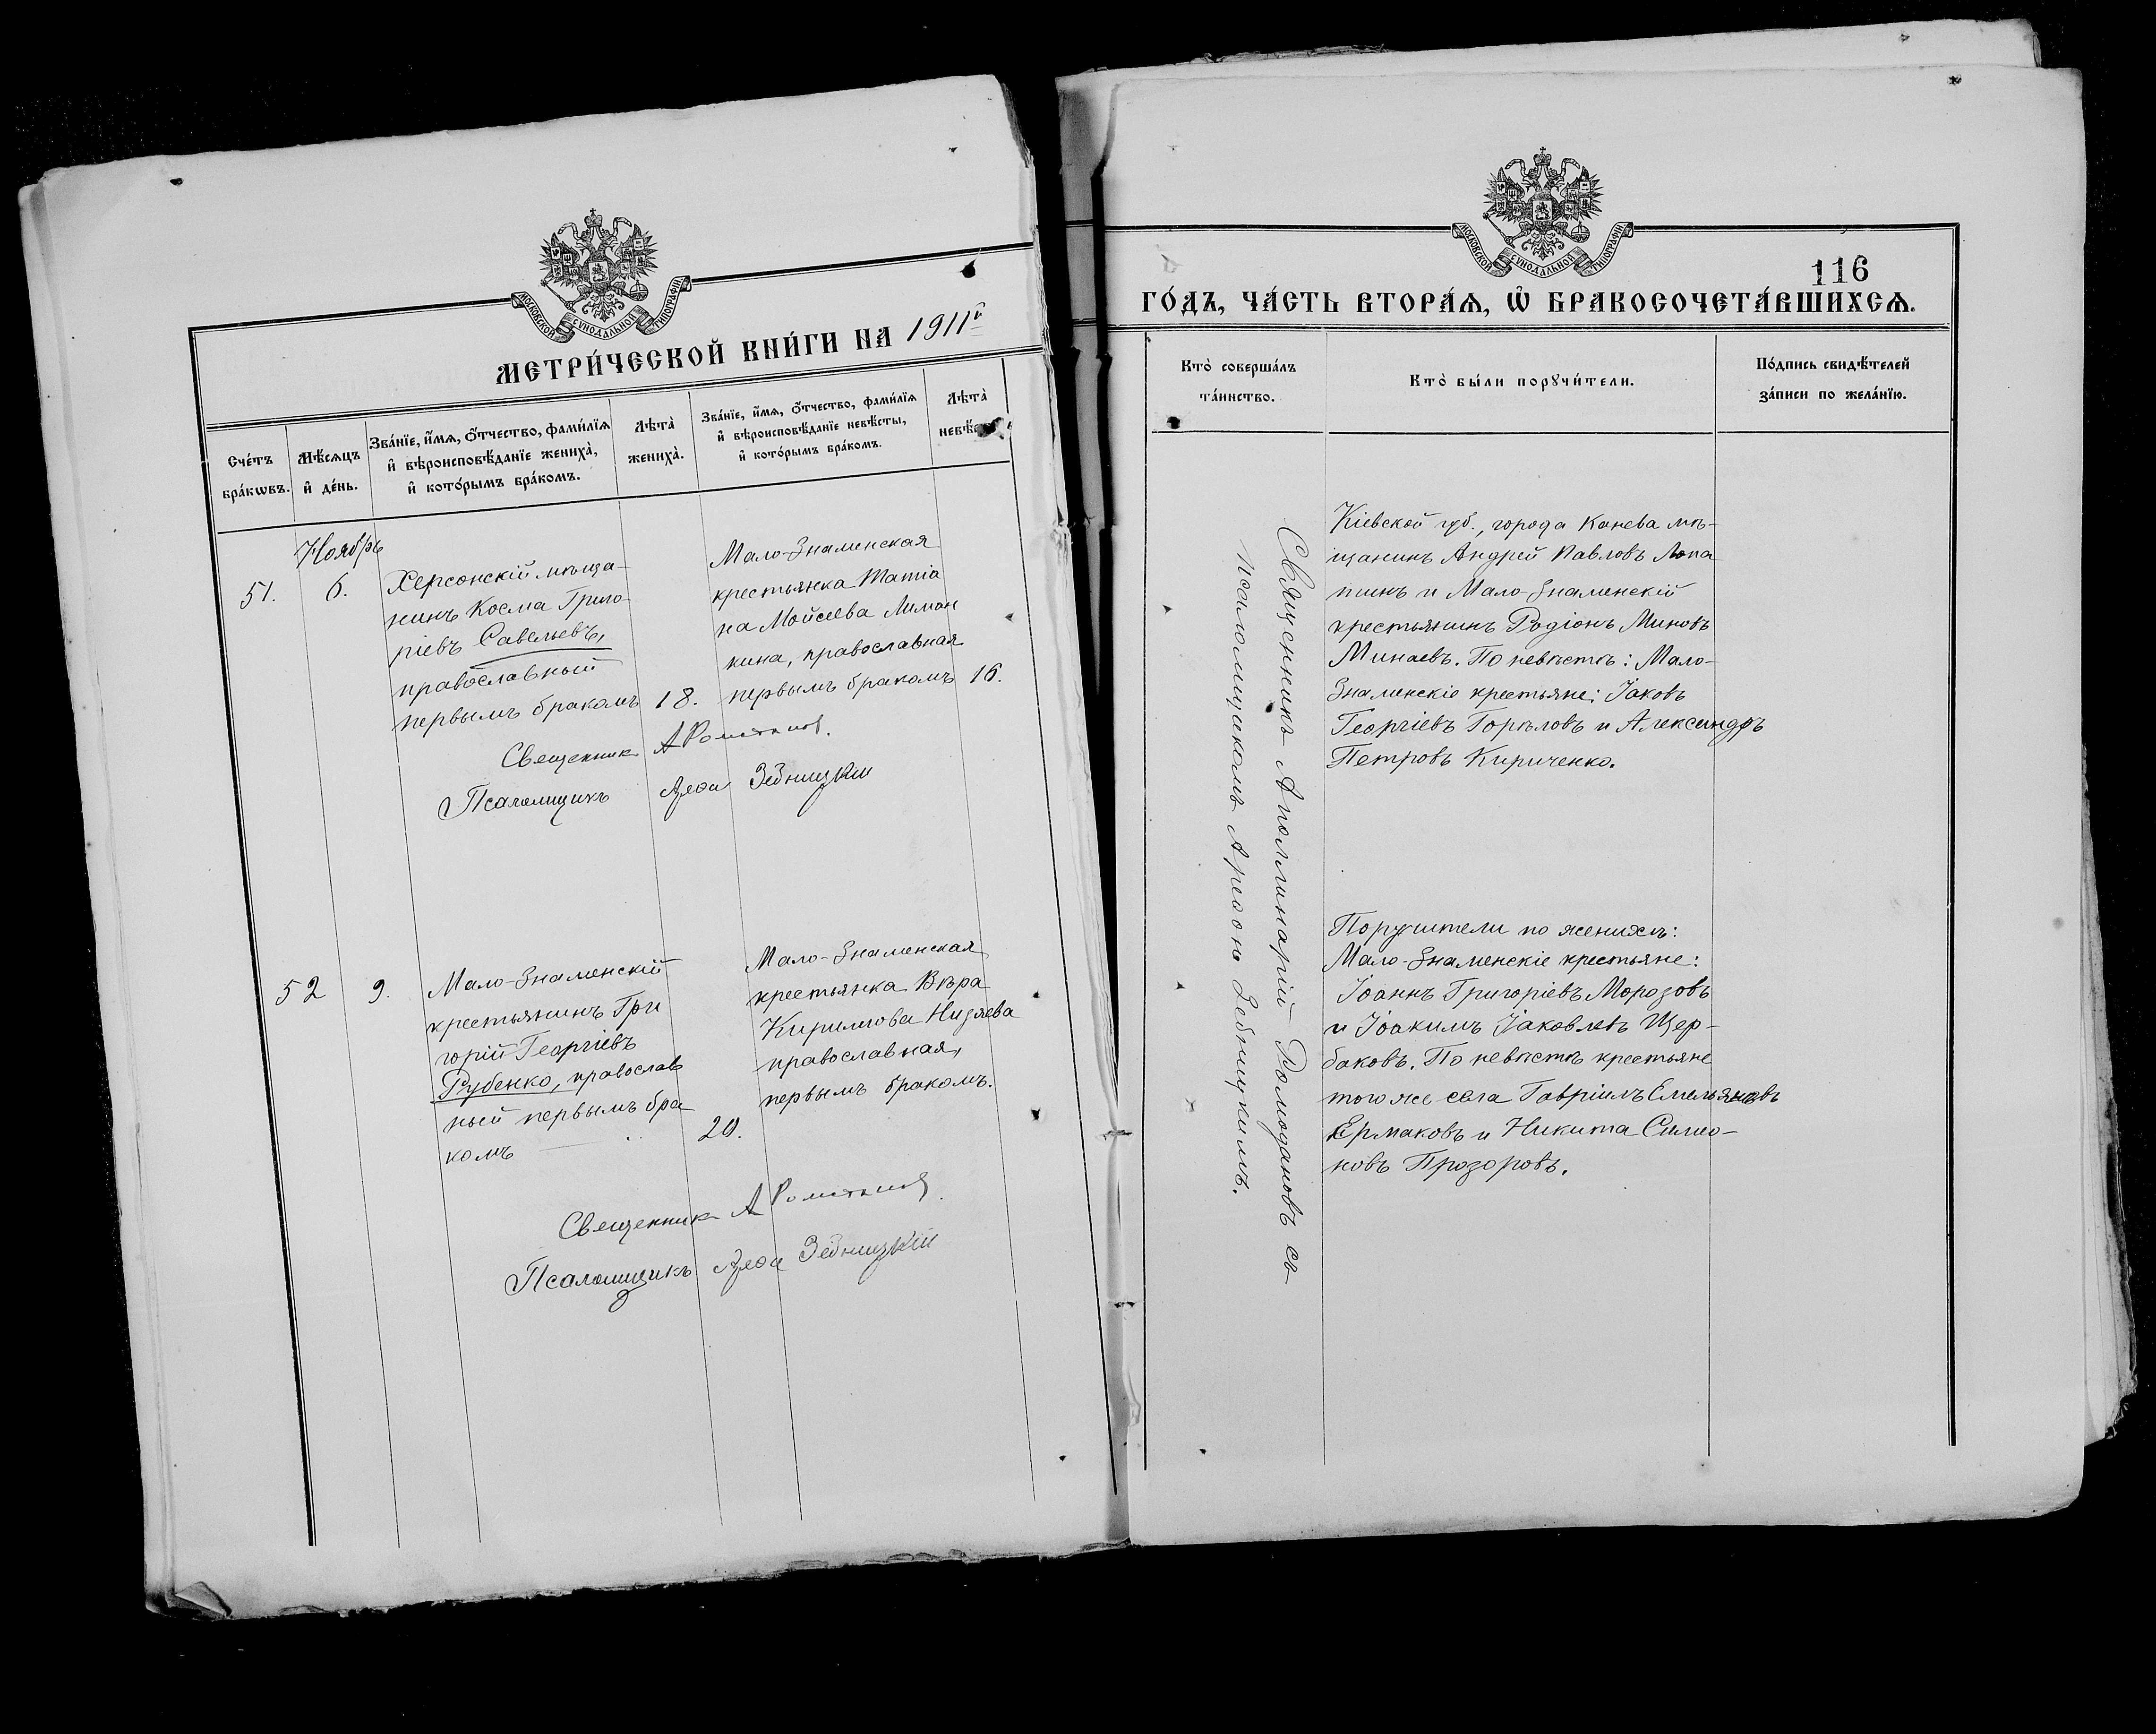 МОСКОВСКОЙ СѴНОДАЛЬНОЙ ТИПОГРАФІИ
МЕТРИ́ЧЕСКОЙ КНИ́ГИ НА 1911й
Сче́тъ бра́кѡвъ.
Мѣ́сѧцъ и҆ де́нь.
Зва́нїе, и҆́мѧ, ѻ҆́тчество, фами́лїѧ
и҆ вѣроисповѣ́данїе жениха̀,
и҆ кото́рымъ бра́комъ.
Лѣта̀
жениха̀.
Зва́нїе, и҆́мѧ, ѻ҆́тчество, фами́лїѧ
и҆ вѣроисповѣ́данїе невѣ́сты,
и҆ кото́рымъ бра́комъ.
Лѣта̀
Ноябрь
51.
6.
Херсонскій мѣща-
нинъ Косма Григо-
ріевъ Савельевъ,
православный
первымъ бракомъ
18.
Мало-Знаменская
крестьянка Татіа
на Мойсеева Лиман
кина, православная
первымъ бракомъ
16.
Священник
Псаломщикъ
52
9.
Мало-Знаменскій
крестьянинъ Гри
горій Георгіевъ
Рубенко, православ
ный первымъ бра
комъ
20.
Мало-Знаменская
крестьянка Вѣра
Кириллова Низяева
православная,
первымъ бракомъ.
Священник
Псаломщикъ
МОСКОВСКОЙ СѴНОДАЛЬНОЙ ТИПОГРАФІИ
116
ГО́ДЪ, ЧА́СТЬ ВТОРА́Ѧ, Ѡ҆ БРАКОСОЧЕТА́ВШИХСѦ.
Кто̀ соверша́лъ
та́инство.
Кто̀ бы́ли порꙋчи́тели.
По́дпись свидѣ́телей
за́писи по жела́нїю.
Священникъ Аполлинарій Ромодановъ съ
псаломщикомъ Ареѳою Зебницкимъ.
Кіевской губ., города Канева мѣ-
щанинъ Андрей Павловъ Лопа
тинъ и Мало-Знаменскій
крестьянинъ Родіонъ Миновъ
Минаевъ. По невѣстѣ: Мало-
Знаменскіе крестьяне: Іаковъ
Георгіевъ Горѣловъ и Александръ
Петровъ Кириченко.
Поручители по женихѣ:
Мало-Знаменскіе крестьяне:
Іоаннъ Григоріевъ Морозовъ
и Іоакимъ Іаковлевъ Щер-
баковъ. По невѣстѣ крестьяне
того же села Гавріилъ Емельяновъ
Ермаковъ и Никита Симео-
новъ Прозоровъ.